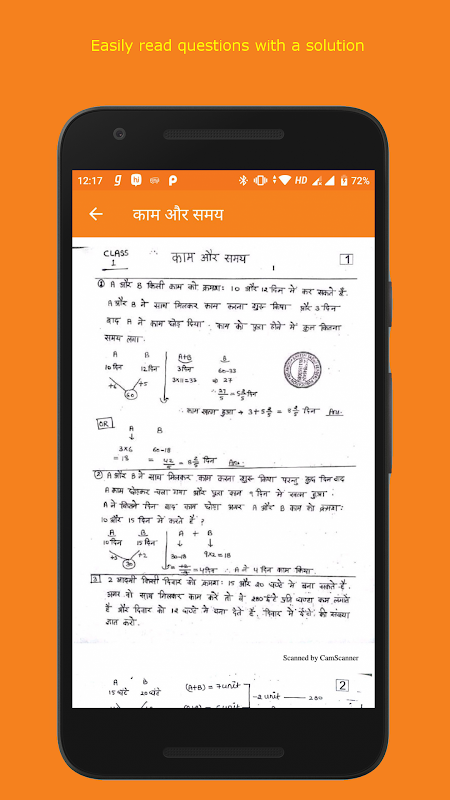 Easily read questions with a solution
12:17
HD
72%
काम और समय
CLASS
1
काम और समय
1
① A और B किसी काम को क्रमशः 10 और 12 दिन में कर सकते हैं.
A और B ने साथ मिलकर काम करना शुरू किया और 3 दिन
बाद A ने काम छोड़ दिया. काम को पूरा होने में कुल कितना
समय लगा.
A B A+B B
10 दिन 12 दिन 3 दिन 60-33
+6 +5 3×11=33 ⇒ 27
60 27/5 = 5 2/5 दिन
∴ काम खत्म हुआ → 3+5 2/5 = 8 2/5 दिन Ans.
OR A B
3×6 60-18
= 18 = 42/5 = 8 2/5 दिन Ans.
② A और B ने साथ मिलकर काम करना शुरू किया परन्तु कुछ दिन बाद
A काम छोड़कर चला गया और पूरा काम 9 दिन में खत्म हुआ.
A ने कितने दिन बाद काम छोड़ा अगर A और B काम को क्रमशः
10 और 15 दिन में करते हैं ?
A B A + B
10 दिन 15 दिन
+3 +2 30-18 9×2=18
30 = 4 दिन ∴ A ने 4 दिन काम किया.
3 2 आदमी किसी दिवार को क्रमशः 15 और 20 घण्टे में बना सकते हैं.
अगर वो साथ मिलकर काम करें तो वे 280 ईंटे प्रति घण्टा कम लगाते
हैं और दिवार को 12 घण्टे में बना देते हैं. दिवार में ईंटों की संख्या
ज्ञात करो.
Scanned by CamScanner
2
A B
15 घंटे 20 घंटे (A+B) = 7 unit
-2 unit — 280